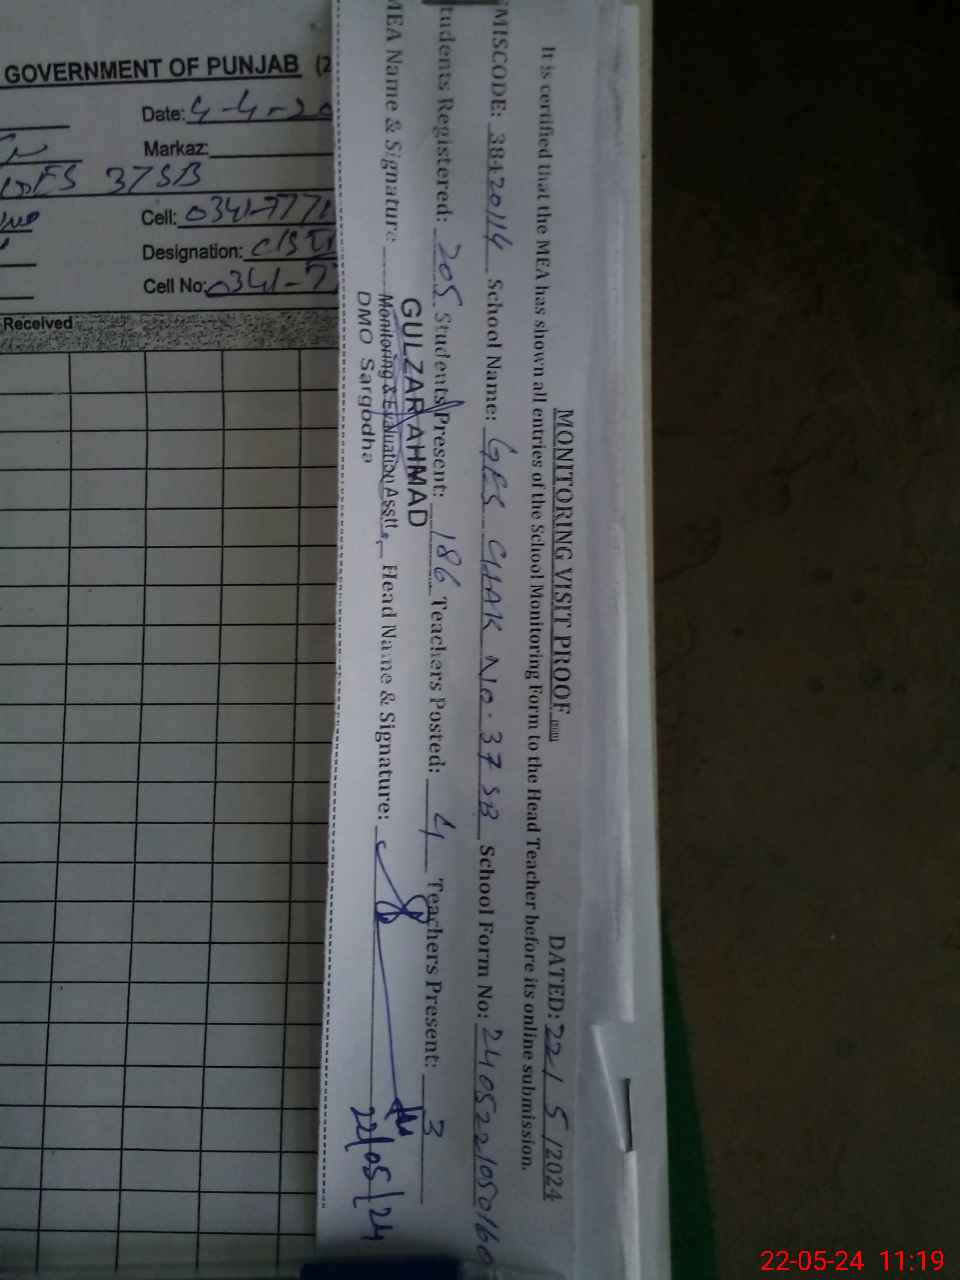 MONITORING VISIT PROOF
DATED: 22/5/2024
It is certified that the MEA has shown all entries of the School Monitoring Form to the Head Teacher before its online submission.
MISCODE: 38420114 School Name: GES CHAK NO. 37 SB School Form No:
tudents Registered: 205 Students Present: 186 Teachers Posted: 4 Teachers Present: 3
MEA Name & Signature Head Name & Signature:
GULZAR AHMAD
Monitoring & Evaluation Asstt,
DMO Sargodha
22/05/24
GOVERNMENT OF PUNJAB (2
Date: 4-4-20
Markaz:
37SB
Cell: 0341-777
Designation:
Cell No: 0341-7
Received
22-05-24 11:19